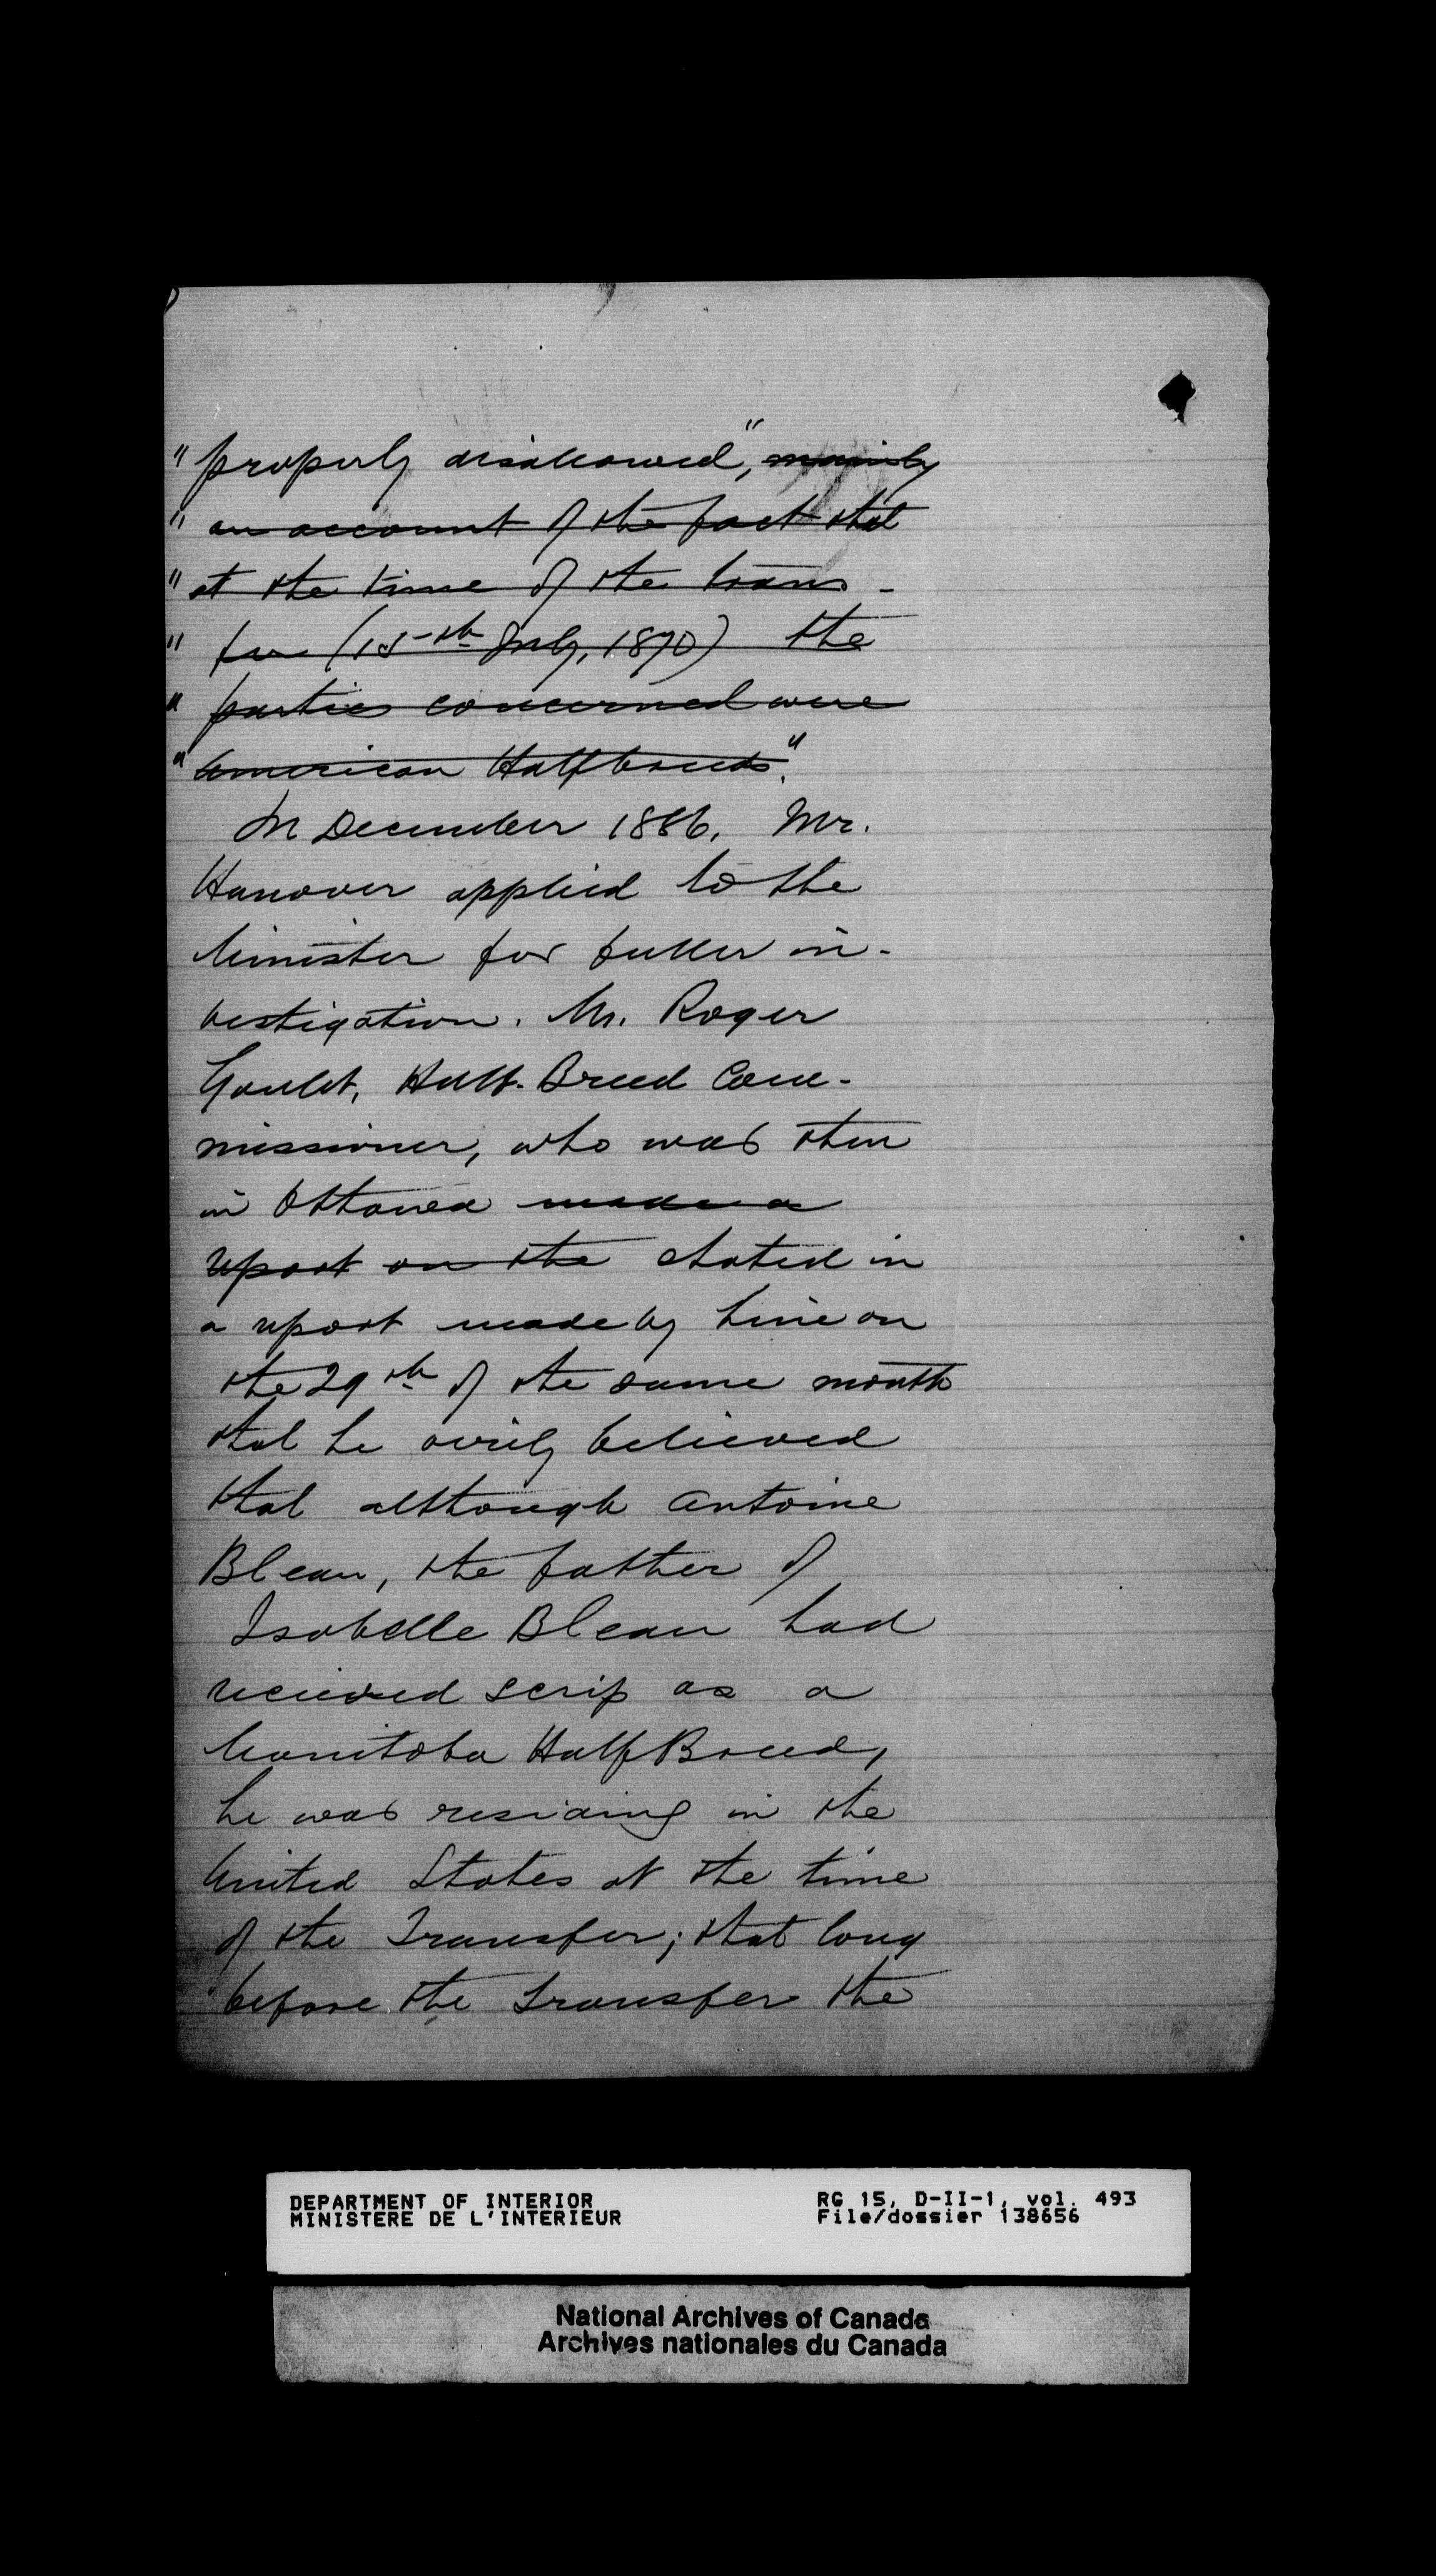 "properly disallowed", mainly
" on account of the fact that
" at the time of the trans-
" fer (15th July, 1870) the
" parties concerned were
" American Halfbreeds".
In December 1886, Mr.
Hanover applied to the
Minister for fuller in-
vestigation. Mr. Roger
Goulet, Half-Breed Com-
missioner, who was then
in Ottawa made a
report on the stated in
a report made by him on
the 29th of the same month
that he verily believed
that although Antoine
Bleau, the father of
Isabelle Bleau had
received scrip as a
Manitoba Half Breed,
he was residing in the
United States at the time
of the Transfer; that long
before the Transfer the
DEPARTMENT OF INTERIOR
MINISTERE DE L'INTERIEUR
RG 15, D-II-1, vol. 493
File/dossier 138656
National Archives of Canada
Archives nationales du Canada